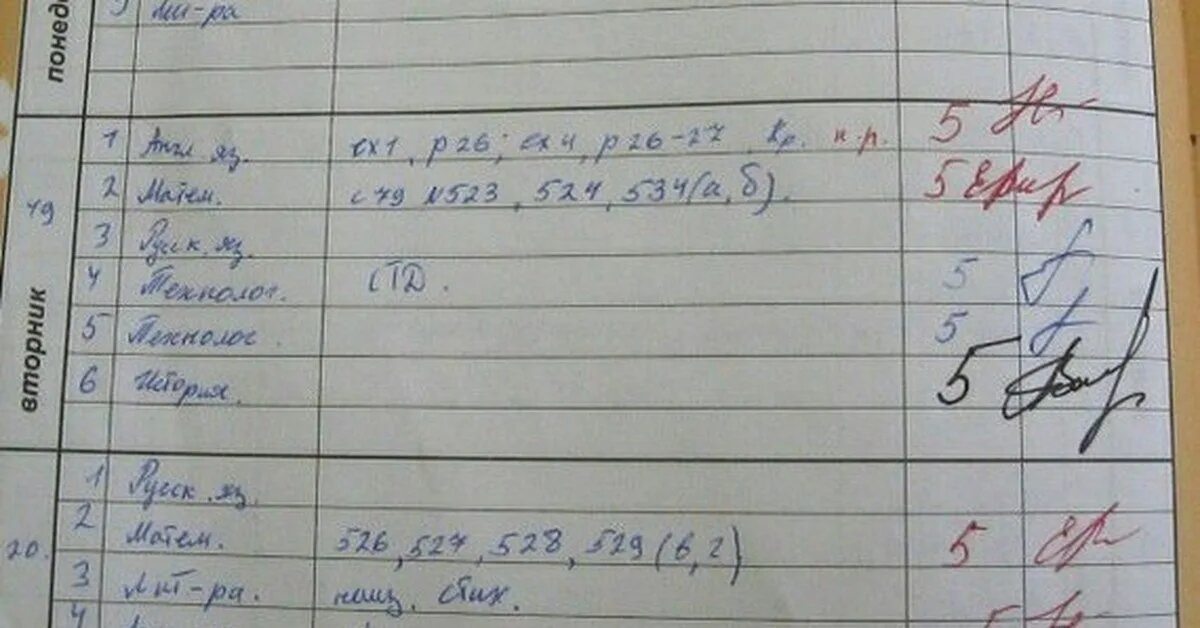 понед
5 Лит-ра
вторник
19
1 Англ яз. ex1, p26; ex4, p26-27 Кр. к-р. 5
2 Матем. с 79 №523, 524, 534(а, б). 5
3 Русск. яз.
4 Технолог. СТД. 5
5 Технолог. 5
6 История. 5
20.
1 Русск. яз.
2 Матем. 526, 527, 528, 529 (в, г) 5
3 Лит-ра. наиз. стих.
4 5